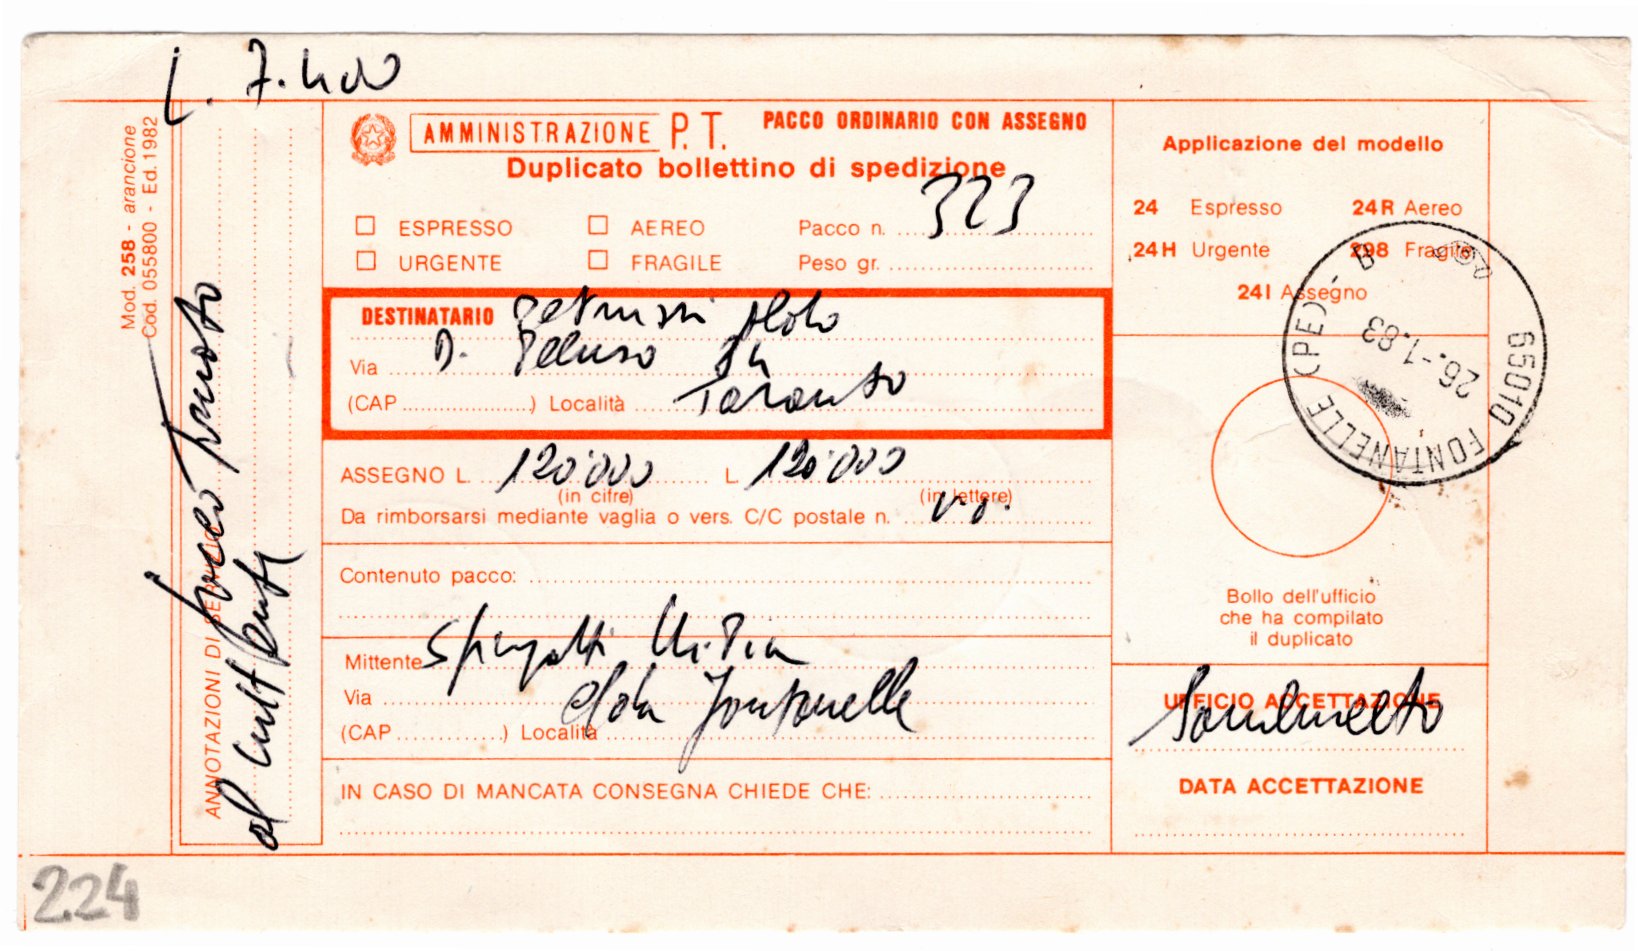 L. 7.400
Mod. 258 - arancione
Cod. 055800 - Ed. 1982
ANNOTAZIONI DI
al mittente
AMMINISTRAZIONE P.T.
PACCO ORDINARIO CON ASSEGNO
Duplicato bollettino di spedizione
☐ ESPRESSO ☐ AEREO Pacco n. 323
☐ URGENTE ☐ FRAGILE Peso gr.
DESTINATARIO
Via D. Peluso 84
(CAP ) Località Taranto
ASSEGNO L. 120.000 L. 120.000
(in cifre) (in lettere)
Da rimborsarsi mediante vaglia o vers. C/C postale n.
Contenuto pacco:
Mittente
Via
(CAP ) Località Fontanelle
IN CASO DI MANCATA CONSEGNA CHIEDE CHE:
Applicazione del modello
24 Espresso 24R Aereo
24H Urgente 298 Fragile
24I Assegno
65010 FONTANELLE (PE) - B
26.-1.83
Bollo dell'ufficio
che ha compilato
il duplicato
UFFICIO ACCETTAZIONE
DATA ACCETTAZIONE
224